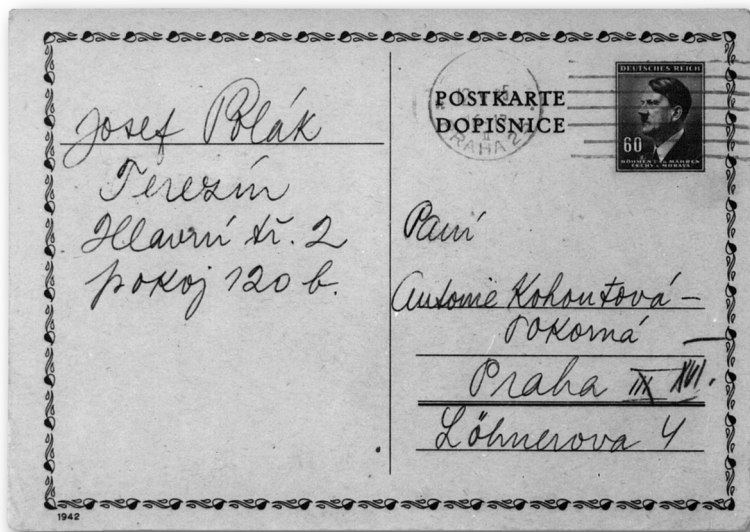 Josef Polák
Terezín
Hlavní tř. 2
pokoj 120 b.
POSTKARTE
DOPISNICE
PRAHA 2
DEUTSCHES REICH
60
BÖHMEN U. MÄHREN
ČECHY A MORAVA
Paní
Antonie Kohoutová-
Pokorná
Praha XVI.
Löhnerova 4
1942